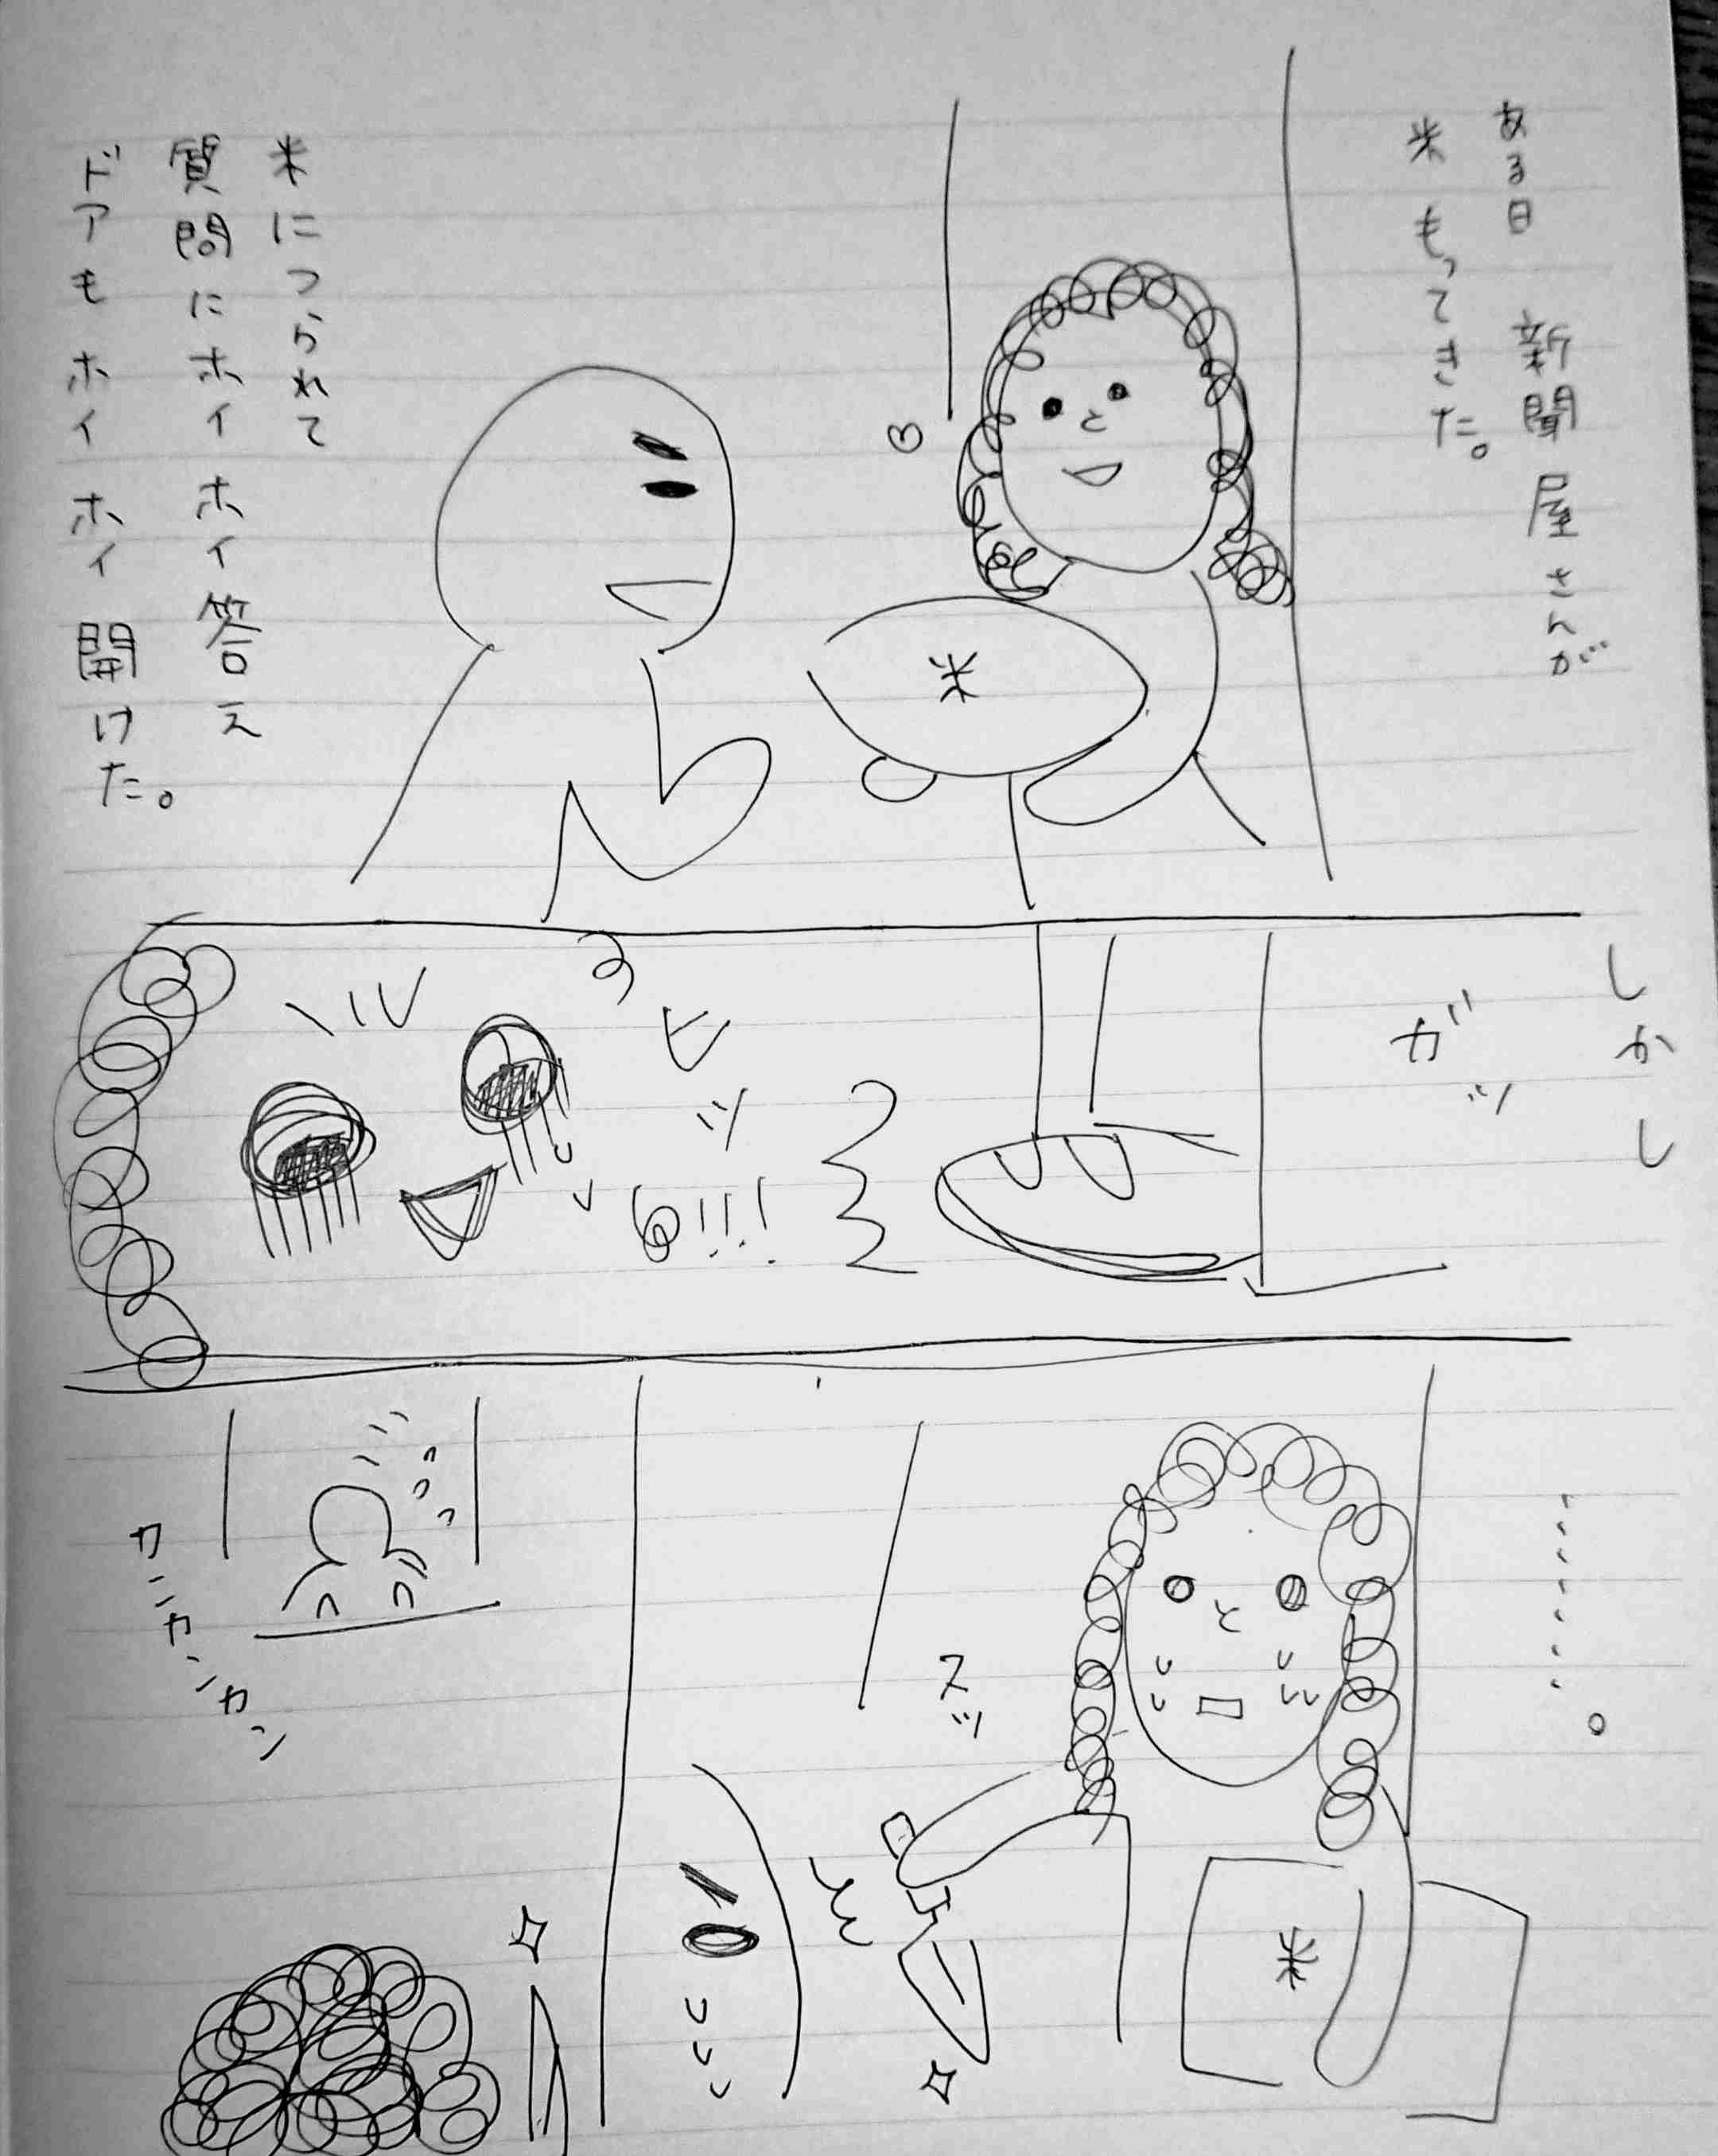 ある日 新聞屋さんが
米もってきた。
米
米につられて
質問にホイホイ答え
ドアもホイホイ開けた。
しかし
ガッ
ヒッ
!!!
………。
米
スッ
カンカンカン